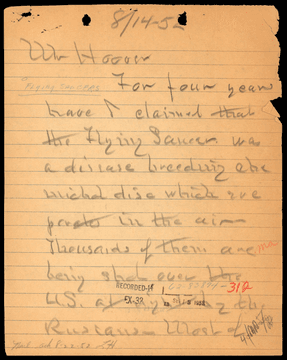 8/14-52
Mr Hoover
Flying Saucers
For four year
have I claimed that
the Flying Saucer was
a disease breeding che
michel disc which are
in the air
Thousands of them are
being shot over the
U.S. by the
RECORDED-14
EX-32
312
Russians - Most of